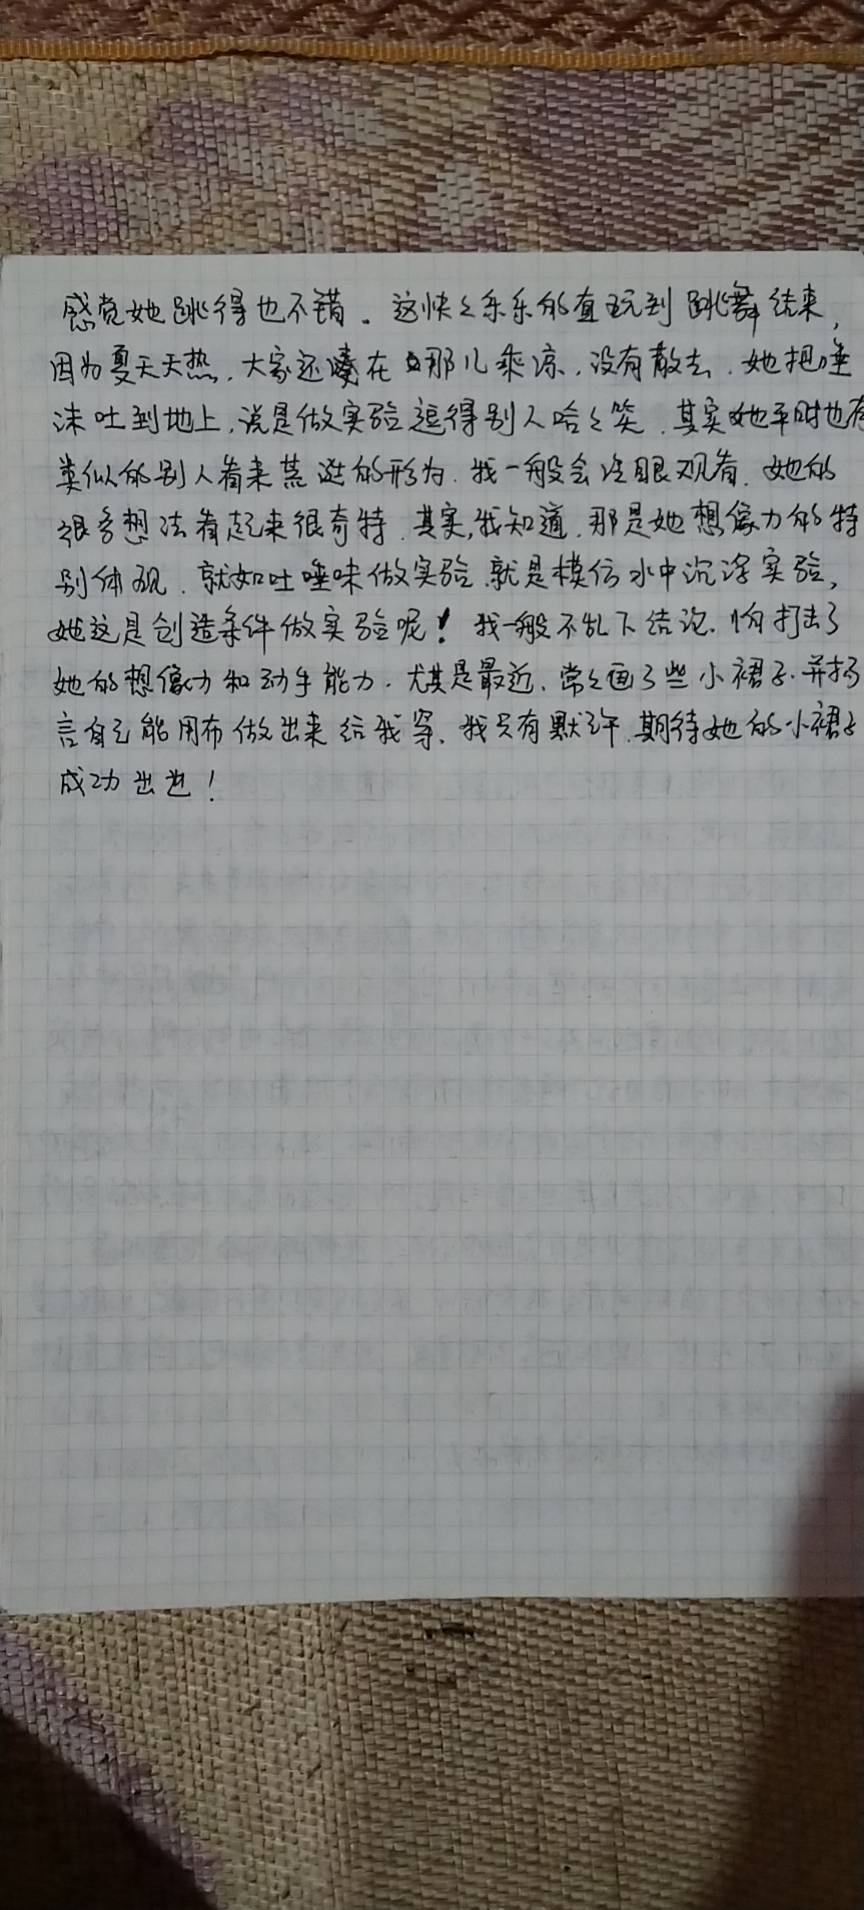 感觉她跳得也不错。这快々乐乐的直玩到跳舞结束,
因为夏天天热,大家还在那儿乘凉,没有散去,她把唾
沫吐到地上,说是做实验逗得别人哈々笑,其实她平时也有
类似的别人看来荒诞的形为,我一般会冷眼观看,她的
很多想法看起来很奇特,其实,我知道,那是她想像力的特
别体现,就如吐唾味做实验,就是模仿水中沉浮实验,
她这是创造条件做实验呢!我一般不乱下结论,怕打击了
她的想像力和动手能力.尤其是最近,常々画了些小裙子.并扬
言自己能用布做出来给我穿,我只有默许,期待她的小裙子
成功出世!